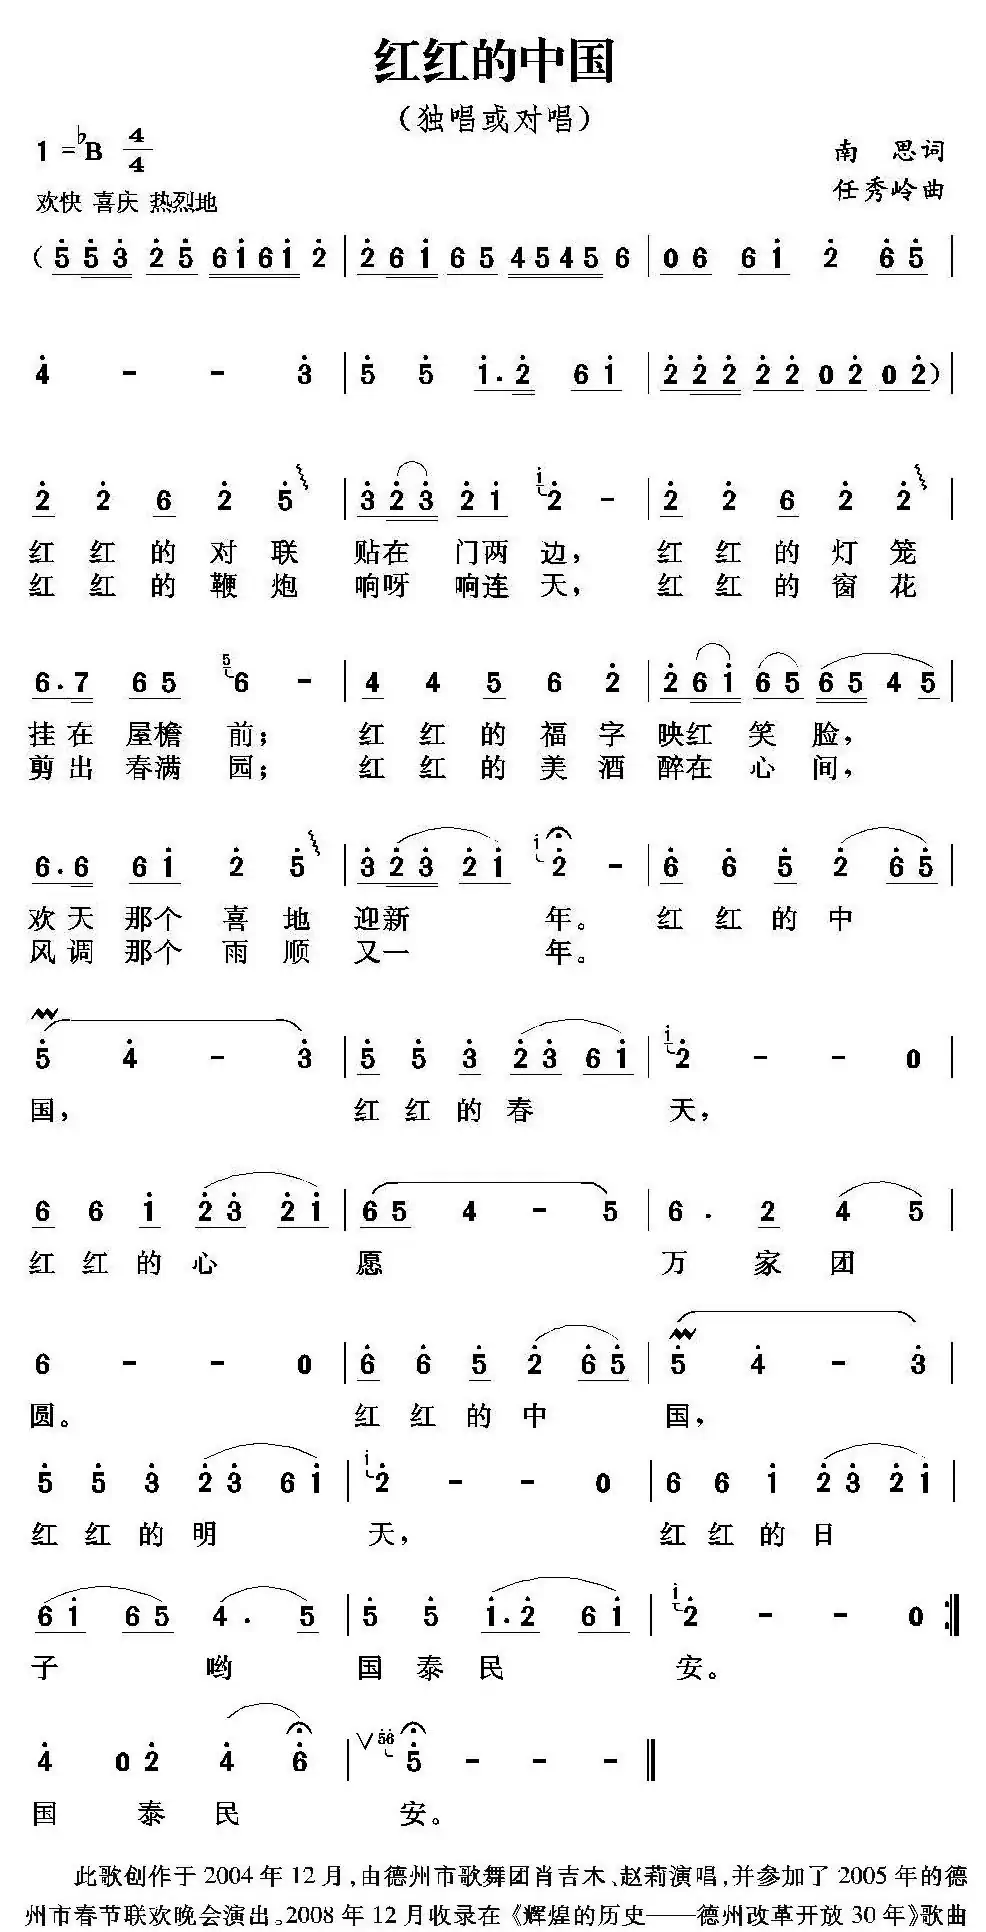 红红的中国
（独唱或对唱）
1=♭B 4/4
南 思词
欢快 喜庆 热烈地
任秀岭曲
（5̇ 5̇ 3̇ 2̇ 5̇ 6 1̇ 6 1̇ 2̇ | 2̇ 6 1̇ 6 5 4 5 4 5 6 | 0 6 6 1̇ 2̇ 6̇ 5̇ |
4̇ - - 3̇ | 5̇ 5̇ 1̇. 2̇ 6 1̇ | 2̇ 2̇ 2̇ 2̇ 2̇ 0 2̇ 0 2̇） |
2̇ 2̇ 6 2̇ 5̇ | 3̇ 2̇ 3̇ 2̇ 1̇ 1̇ 2̇ - | 2̇ 2̇ 6 2̇ 2̇ |
红 红 的 对 联 贴在 门两 边， 红 红 的 灯 笼
红 红 的 鞭 炮 响呀 响连 天， 红 红 的 窗 花
6. 7 6 5 5 6 - | 4 4 5 6 2̇ | 2̇ 6 1̇ 6 5 6 5 4 5 |
挂 在 屋檐 前； 红 红 的 福 字 映红 笑 脸，
剪 出 春满 园； 红 红 的 美 酒 醉在 心 间，
6. 6 6 1̇ 2̇ 5̇ | 3̇ 2̇ 3̇ 2̇ 1̇ 1̇ 2̇ - | 6̇ 6̇ 5̇ 2̇ 6̇ 5̇ |
欢 天 那个 喜 地 迎新 年。 红 红 的 中
风 调 那个 雨 顺 又一 年。
5̇ 4̇ - 3̇ | 5̇ 5̇ 3̇ 2̇ 3̇ 6 1̇ | 1̇ 2̇ - - 0
国， 红 红 的 春 天，
6 6 1̇ 2̇ 3̇ 2̇ 1̇ | 6 5 4 - 5 | 6. 2 4 5 |
红 红 的 心 愿 万 家 团
6 - - 0 | 6̇ 6̇ 5̇ 2̇ 6̇ 5̇ | 5̇ 4̇ - 3̇ |
圆。 红 红 的 中 国，
5̇ 5̇ 3̇ 2̇ 3̇ 6 1̇ | 1̇ 2̇ - - 0 | 6 6 1̇ 2̇ 3̇ 2̇ 1̇ |
红 红 的 明 天， 红 红 的 日
6 1̇ 6 5 4. 5 | 5̇ 5̇ 1̇. 2̇ 6 1̇ | 1̇ 2̇ - - 0 :‖
子 哟 国 泰 民 安。
4̇ 0 2̇ 4̇ 6̇ | ∨ 5̇6̇ 5̇ - - - ‖
国 泰 民 安。
此歌创作于2004年12月，由德州市歌舞团肖吉木、赵莉演唱，并参加了2005年的德
州市春节联欢晚会演出。2008年12月收录在《辉煌的历史——德州改革开放30年》歌曲